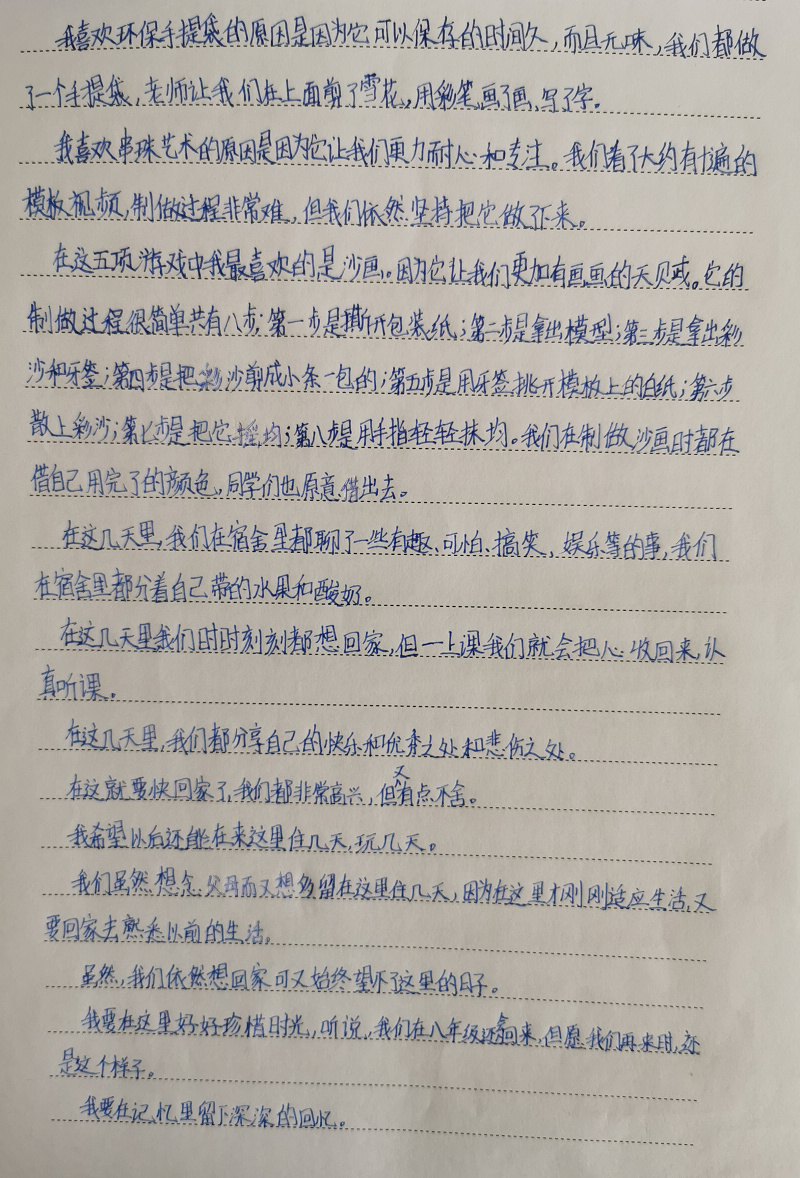 我喜欢环保手提袋的原因是因为它可以保存的时间久，而且无味，我们都做
了一个手提袋，老师让我们在上面剪了雪花，用彩笔画了画，写了字。
我喜欢串珠艺术的原因是因为它让我们更力耐心和专注。我们看了大约有十遍的
模板视频，制做过程非常难，但我们依然坚持把它做了下来。
在这五项游戏中我最喜欢的是沙画。因为它让我们更加有画画的天贝或。它的
制做过程很简单共有八步：第一步是撕开包装纸；第二步是拿出模型；第三步是拿出彩
沙和牙签；第四步是把彩沙剪成小条一包的；第五步是用牙签挑开模板上的白纸；第六步
散上彩沙；第七步是把它摇均；第八步是用手指轻轻抹均。我们在制做沙画时都在
借自己用完了的颜色，同学们也原意借出去。
在这几天里，我们在宿舍里都聊了一些有趣、可怕、搞笑、娱乐等的事，我们
在宿舍里都分着自己带的水果和酸奶。
在这几天里我们时时刻刻都想回家，但一上课我们就会把心收回来，认
真听课。
在这几天里，我们都分享自己的快乐和优秀之处和悲伤之处。
在这就要快回家了，我们都非常高兴，但又有点不舍。
我希望以后还能在来这里住几天，玩几天。
我们虽然想念父母而又想多留在这里住几天，因为在这里才刚刚适应生活，又
要回家去熟悉以前的生活。
虽然，我们依然想回家可又始终望不了这里的日子。
我要在这里好好珍惜时光，听说，我们在八年级还会回来，但愿我们再来时，还
是这个样子。
我要在记忆里留下深深的回忆。